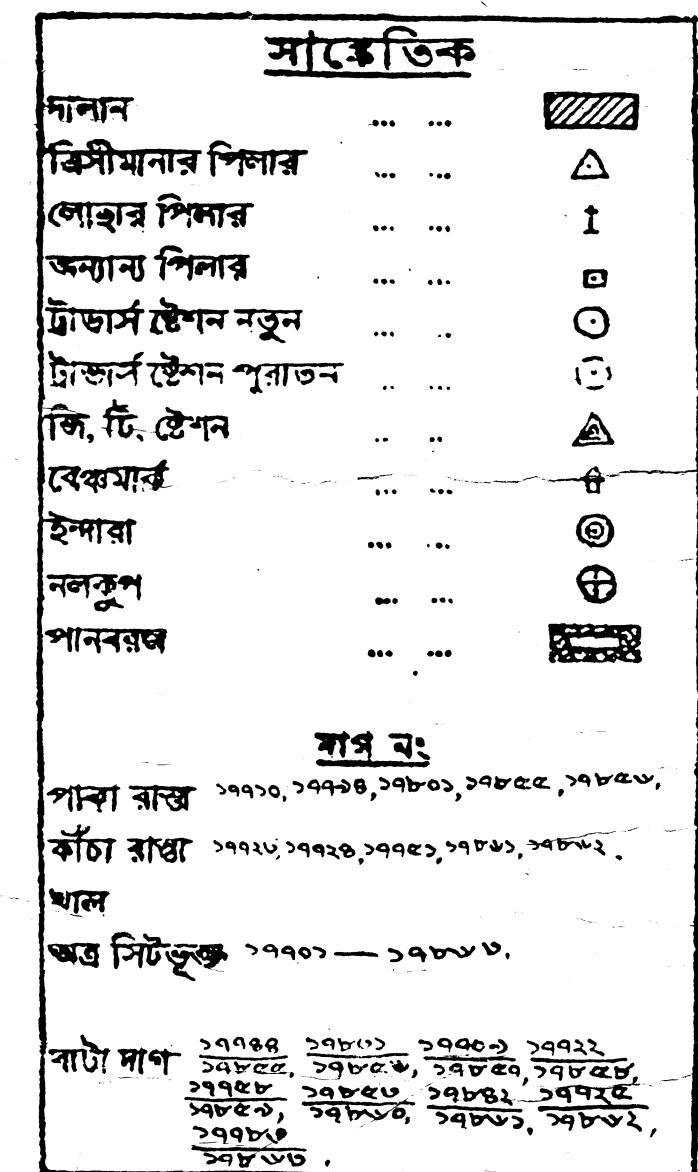 সাঙ্কেতিক
দালান ... ...
ত্রিসীমানার পিলার ... ...
লোহার পিলার ... ...
অন্যান্য পিলার ... ...
ট্রাভার্স ষ্টেশন নতুন ... ..
ট্রাভার্স ষ্টেশন পুরাতন .. ...
জি, টি, ষ্টেশন .. ..
বেঞ্চমার্ক ... ...
ইন্দারা ... ...
নলকূপ ... ...
পানবরজ ... ...
দাগ নং
পাকা রাস্তা ১৭৭১০, ১৭৭১৪, ১৭৮০১, ১৭৮৫৫, ১৭৮৫৬,
কাঁচা রাস্তা ১৭৭২৪, ১৭৭৫১, ১৭৮৬১, ১৭৮৬২.
খাল
অত্র সিটভূক্ত ১৭৭০১ — ১৭৮৬৩.
বাটা দাগ ১৭৭৪৪ ১৭৮৩১ ১৭৭২২
১৭৮৫৫, ১৭৮৫৬, ১৭৮৫৭, ১৭৮৫৮,
১৭৭৫৮ ১৭৮৫৩ ১৭৮৪২ ১৭৭২৫
১৭৮৫৯, ১৭৮৬০, ১৭৮৬১, ১৭৮৬২,
১৭৭৮৩
১৭৮৬৩.